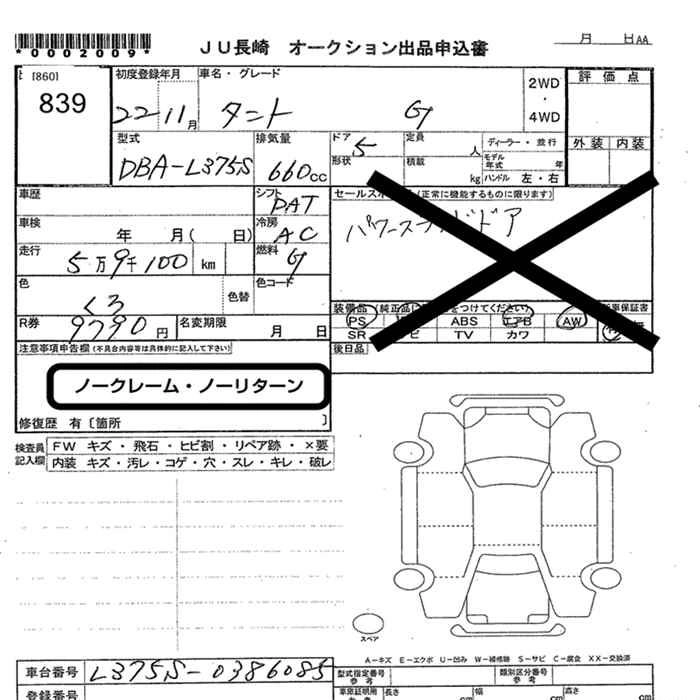 *0002009*
JU長崎 オークション出品申込書
月 日AA
[860]
839
初度登録年月
22 11月
車名・グレード
タント G
2WD
・
4WD
評価点
外装 内装
型式
DBA-L375S
排気量
660cc
ドア
5
形状
定員
人
積載
kg
ディーラー・並行
モデル年式 年
ハンドル 左・右
車歴
シフト
PAT
車検
年 月( 日)
冷房
AC
走行
5万9千100 km
燃料
G
色
くろ
色替
色コード
R券
9790円
名変期限
月 日
セールスポ (正常に機能するものに限ります)
パワースライドドア
装備品 (純正品に をつけてください)
PS ABS エアB AW
SR ビ TV カワ
車保証書
後日品
注意事項申告欄(不具合内容等は具体的に記入して下さい)
ノークレーム・ノーリターン
修復歴 有〔箇所 〕
検査員記入欄
FW キズ・飛石・ヒビ割・リペア跡・×要
内装 キズ・汚レ・コゲ・穴・スレ・キレ・破レ
スペア
A-キズ E-エクボ U-凹み W-補修跡 S-サビ C-腐食 XX-交換済
車台番号
L375S-0386085
登録番号
型式指定番号
参考
類別区分番号
参考
車庫証明用
長さ cm
幅 cm
高さ cm